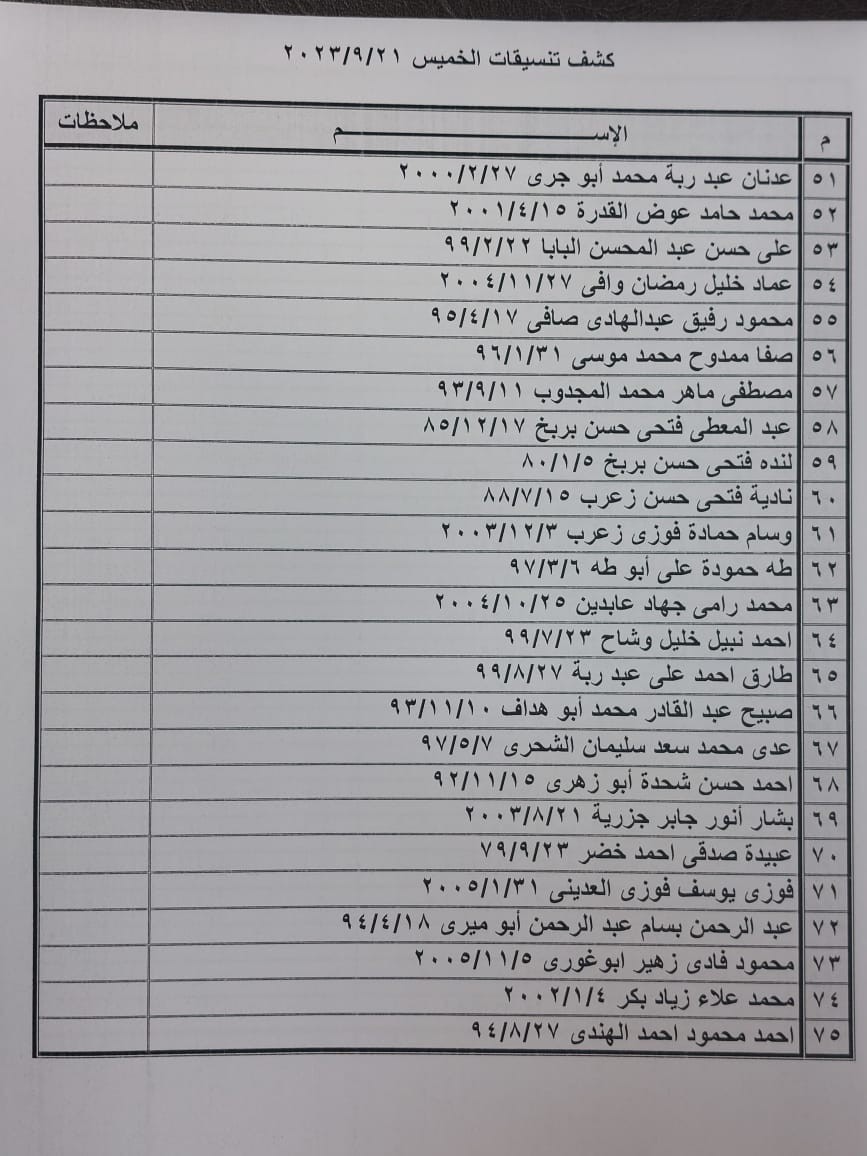 كشف تنسيقات الخميس ٢٠٢٣/٩/٢١
م الإســـــــــــــــــــــم ملاحظات
٥١ عدنان عبد ربة محمد أبو جرى ٢٠٠٠/٢/٢٧
٥٢ محمد حامد عوض القدرة ٢٠٠١/٤/١٥
٥٣ على حسن عبد المحسن البابا ٩٩/٢/٢٢
٥٤ عماد خليل رمضان وافى ٢٠٠٤/١١/٢٧
٥٥ محمود رفيق عبدالهادى صافى ٩٥/٤/١٧
٥٦ صفا ممدوح محمد موسى ٩٦/١/٣١
٥٧ مصطفى ماهر محمد المجدوب ٩٣/٩/١١
٥٨ عبد المعطى فتحى حسن بربخ ٨٥/١٢/١٧
٥٩ لنده فتحى حسن بربخ ٨٠/١/٥
٦٠ نادية فتحى حسن زعرب ٨٨/٧/١٥
٦١ وسام حمادة فوزى زعرب ٢٠٠٣/١٢/٣
٦٢ طه حمودة على أبو طه ٩٧/٣/٦
٦٣ محمد رامى جهاد عابدين ٢٠٠٤/١٠/٢٥
٦٤ احمد نبيل خليل وشاح ٩٩/٧/٢٣
٦٥ طارق احمد على عبد ربة ٩٩/٨/٢٧
٦٦ صبيح عبد القادر محمد أبو هداف ٩٣/١١/١٠
٦٧ عدى محمد سعد سليمان الشحرى ٩٧/٥/٧
٦٨ احمد حسن شحدة أبو زهرى ٩٢/١١/١٥
٦٩ بشار أنور جابر جزرية ٢٠٠٣/٨/٢١
٧٠ عبيدة صدقى احمد خضر ٧٩/٩/٢٣
٧١ فوزى يوسف فوزى العدينى ٢٠٠٥/١/٣١
٧٢ عبد الرحمن بسام عبد الرحمن أبو ميرى ٩٤/٤/١٨
٧٣ محمود فادى زهير ابوغورى ٢٠٠٥/١١/٥
٧٤ محمد علاء زياد بكر ٢٠٠٢/١/٤
٧٥ احمد محمود احمد الهندى ٩٤/٨/٢٧